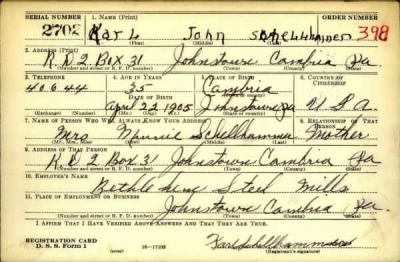 SERIAL NUMBER 1. NAME (Print) ORDER NUMBER
2702 Karl John SCHELLHAMMER 398
(First) (Middle) (Last)
2. ADDRESS (Print)
R D 2 Box 31 Johnstown Cambria Pa.
(Number and street or R. F. D. number) (Town) (County) (State)
3. TELEPHONE 4. AGE IN YEARS 5. PLACE OF BIRTH 6. COUNTRY OF CITIZENSHIP
40644 35 Cambria
DATE OF BIRTH
April 22 1905 Johnstown Pa U S A.
(Mo.) (Day) (Yr.)
7. NAME OF PERSON WHO WILL ALWAYS KNOW YOUR ADDRESS 8. RELATIONSHIP OF THAT PERSON
Mrs Minnie Schellhammer Mother
(Mr., Mrs., Miss) (First) (Middle) (Last)
9. ADDRESS OF THAT PERSON
R.D 2 Box 31 Johnstown Cambria Pa
(Number and street or R. F. D. number) (Town) (County) (State)
10. EMPLOYER'S NAME
Bethlehem Steel Mills
11. PLACE OF EMPLOYMENT OR BUSINESS
Johnstown Cambria Pa
(Number and street or R. F. D. number) (Town) (County) (State)
I AFFIRM THAT I HAVE VERIFIED ABOVE ANSWERS AND THAT THEY ARE TRUE.
REGISTRATION CARD
D. S. S. Form 1 16-17105 Karl Schellhammer
(Registrant's signature)